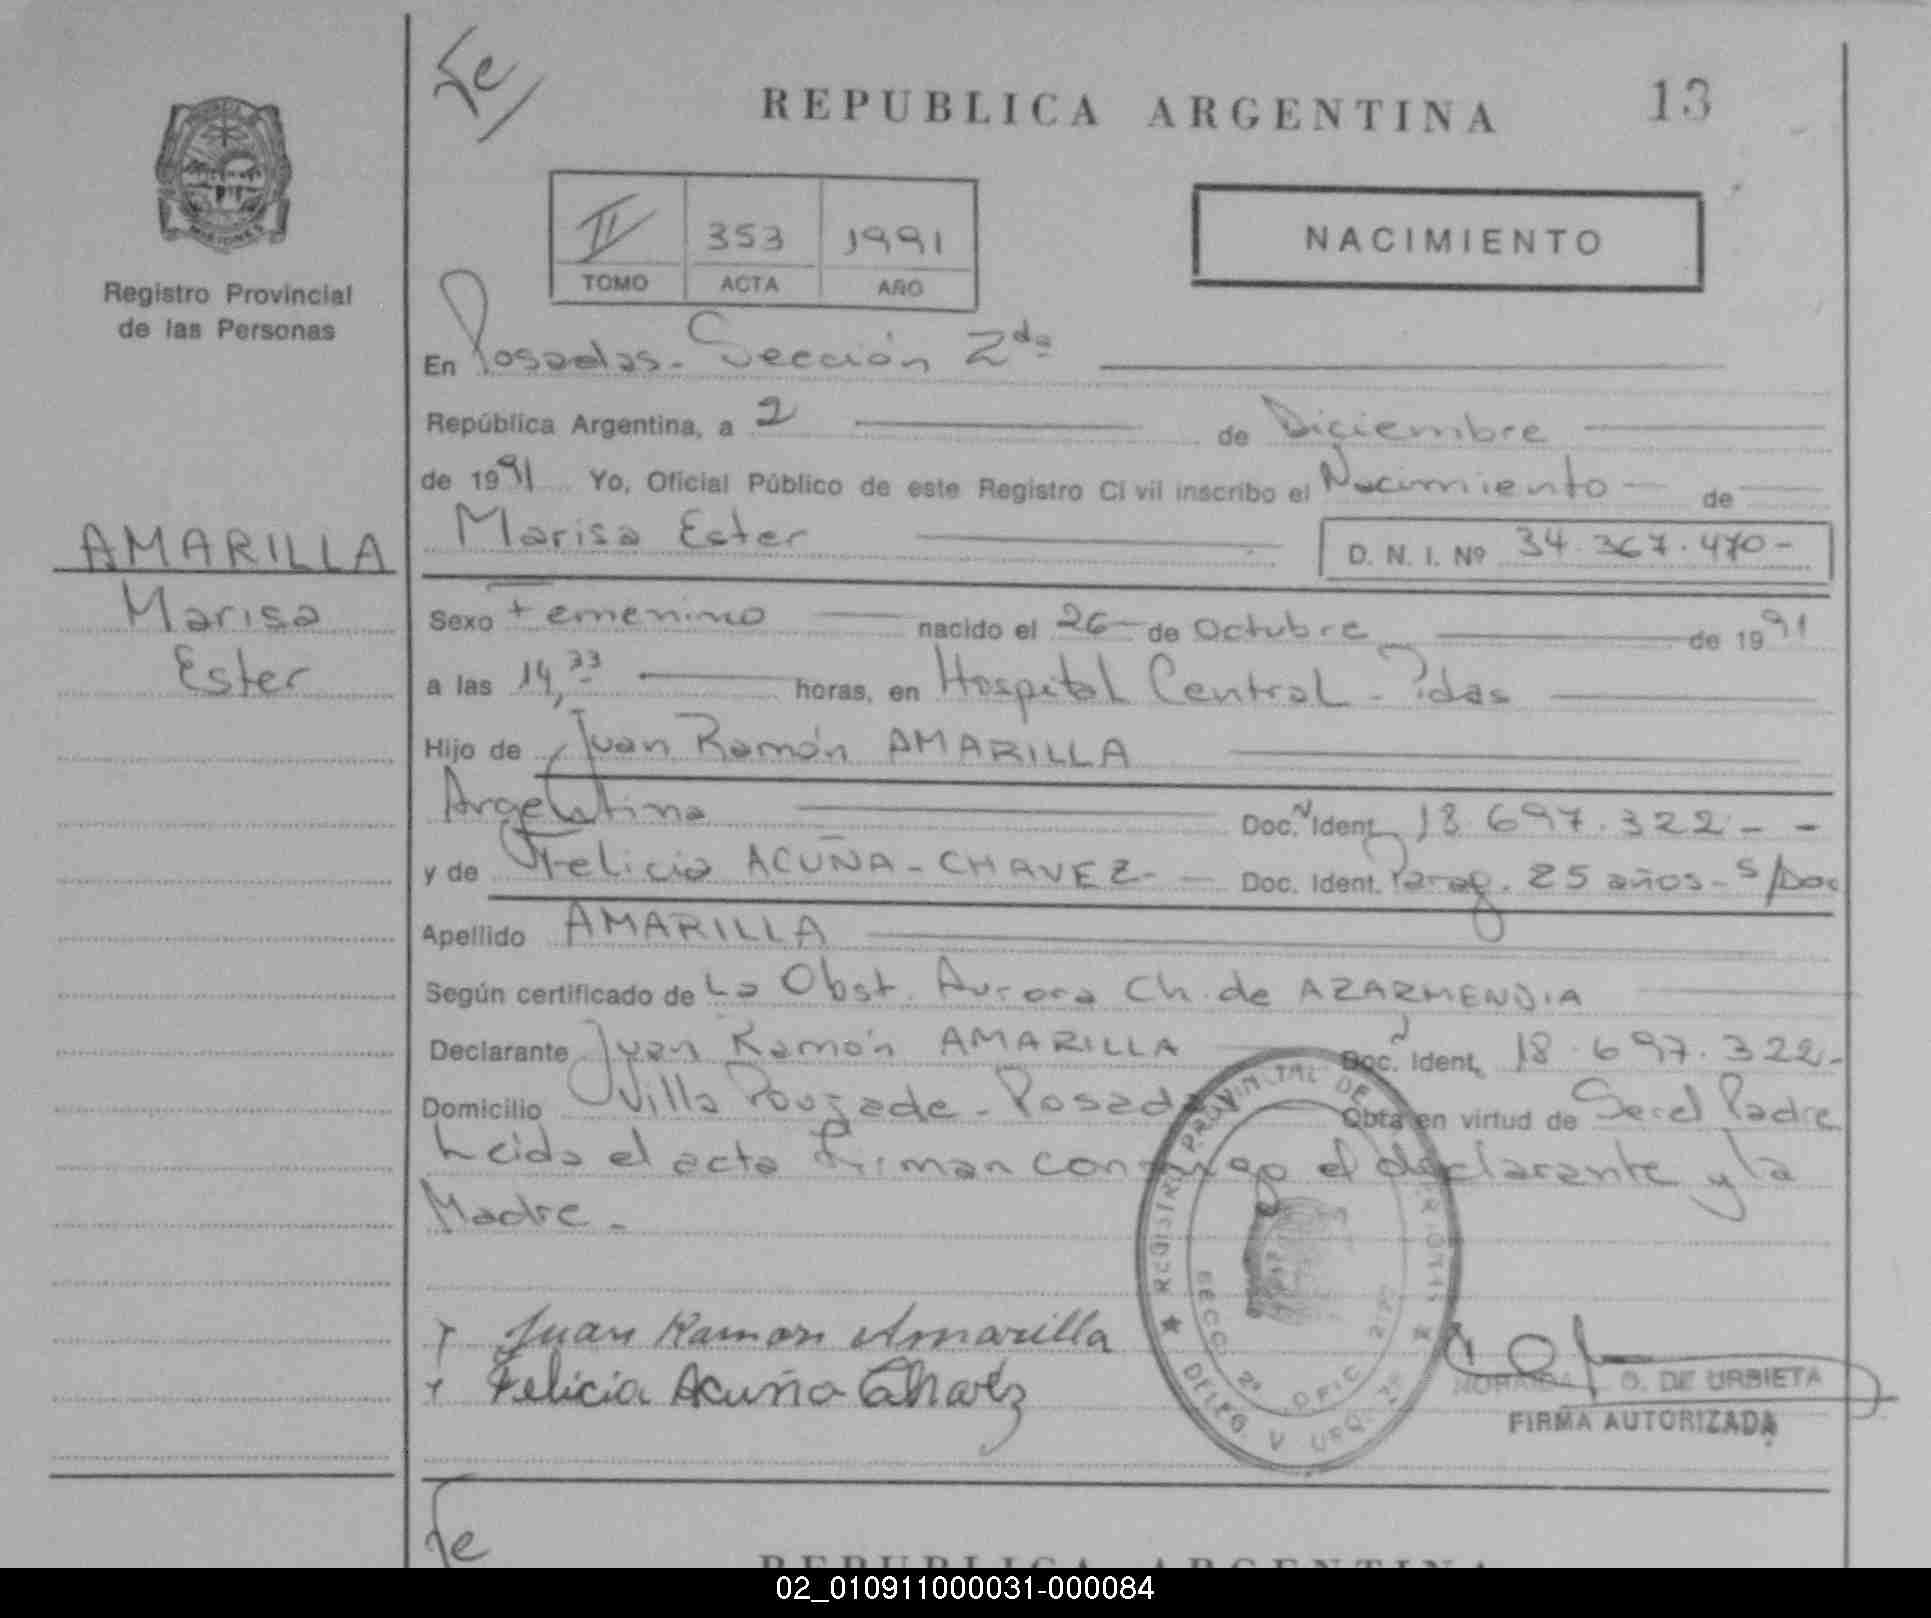 Fe
REPUBLICA ARGENTINA
13
II 353 1991
TOMO ACTA AÑO
NACIMIENTO
MISIONES
Registro Provincial
de las Personas
En Posadas - Sección 2da
República Argentina, a 2 de Diciembre
de 1991 Yo, Oficial Público de este Registro Civil inscribo el Nacimiento de
AMARILLA
Marisa
Ester
Marisa Ester D. N. I. Nº 34.367.470-
Sexo Femenino nacido el 26 de Octubre de 1991
a las 14,33 horas, en Hospital Central - Pdas
Hijo de Juan Ramón AMARILLA
Argentina Doc. Ident. 18.697.322 - -
y de Felicia ACUÑA - CHAVEZ - Doc. Ident. Parag. 25 años - s/Doc
Apellido AMARILLA
Según certificado de La Obst. Aurora Ch. de AZARMENDIA
Declarante Juan Ramón AMARILLA Doc. Ident. 18.697.322-
Domicilio Villa Poujade - Posadas Obra en virtud de Ser el Padre
Leida el acta Firman conmigo el declarante y la
Madre -
Juan Ramon Amarilla
Felicia Acuña Chavez
REGISTRO PROVINCIAL DE
SECC. 2ª OFIC.
DELEG. V URQ.
O. DE URBIETA
FIRMA AUTORIZADA
Fe
REPUBLICA ARGENTINA
02_010911000031-000084